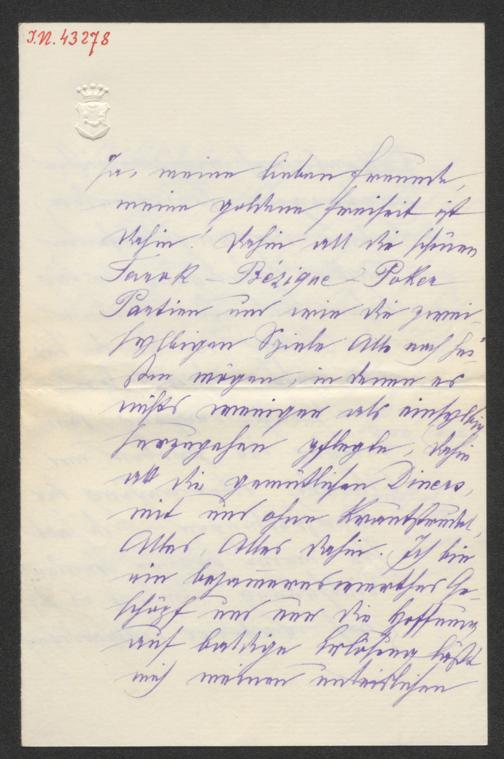 I.N. 43278
Ja, meine lieben Freunde,
meine goldene Freiheit ist
dahin! Dahin all die schönen
Tarok – Bézique – Poker
Partien und wie die zwei-
sylbigen Spiele Alle noch hei-
ßen mögen, in denen es
nichts weniger als einsylbig
herzugehen pflegte, dahin
all die gemütlichen Diners,
mit und ohne Krautstrudel,
Alles, Alles dahin. Ich bin
ein bejammernswerthes Ge-
schöpf und nur die Hoffnung
auf baldige Erlösung läßt
mich meinen